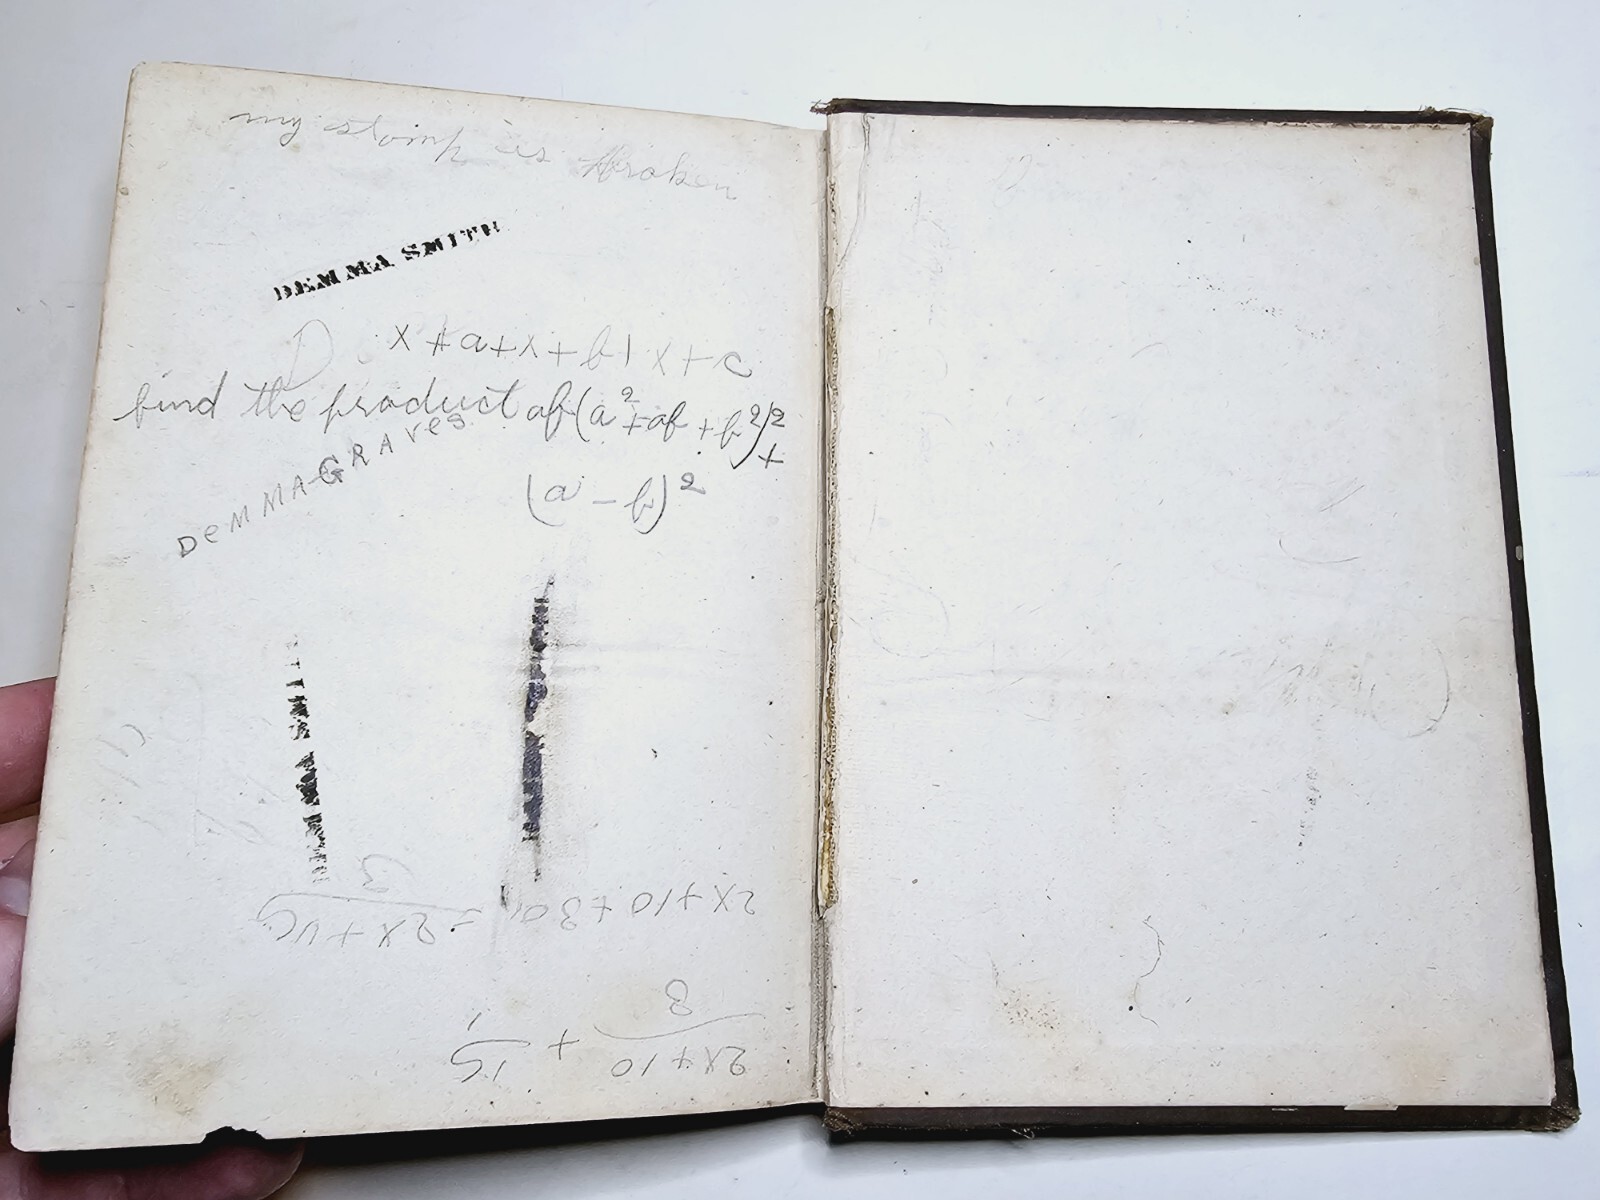 my stamp is broken
DEMMA SMITH
D x + a + x + b | x + c
find the product of (a² + ab + b²)² +
(a - b)²
DeMMA GRAVes
DEMMA SMIT
2x + 10 + 30
3
2x + 10
3
+
15
1